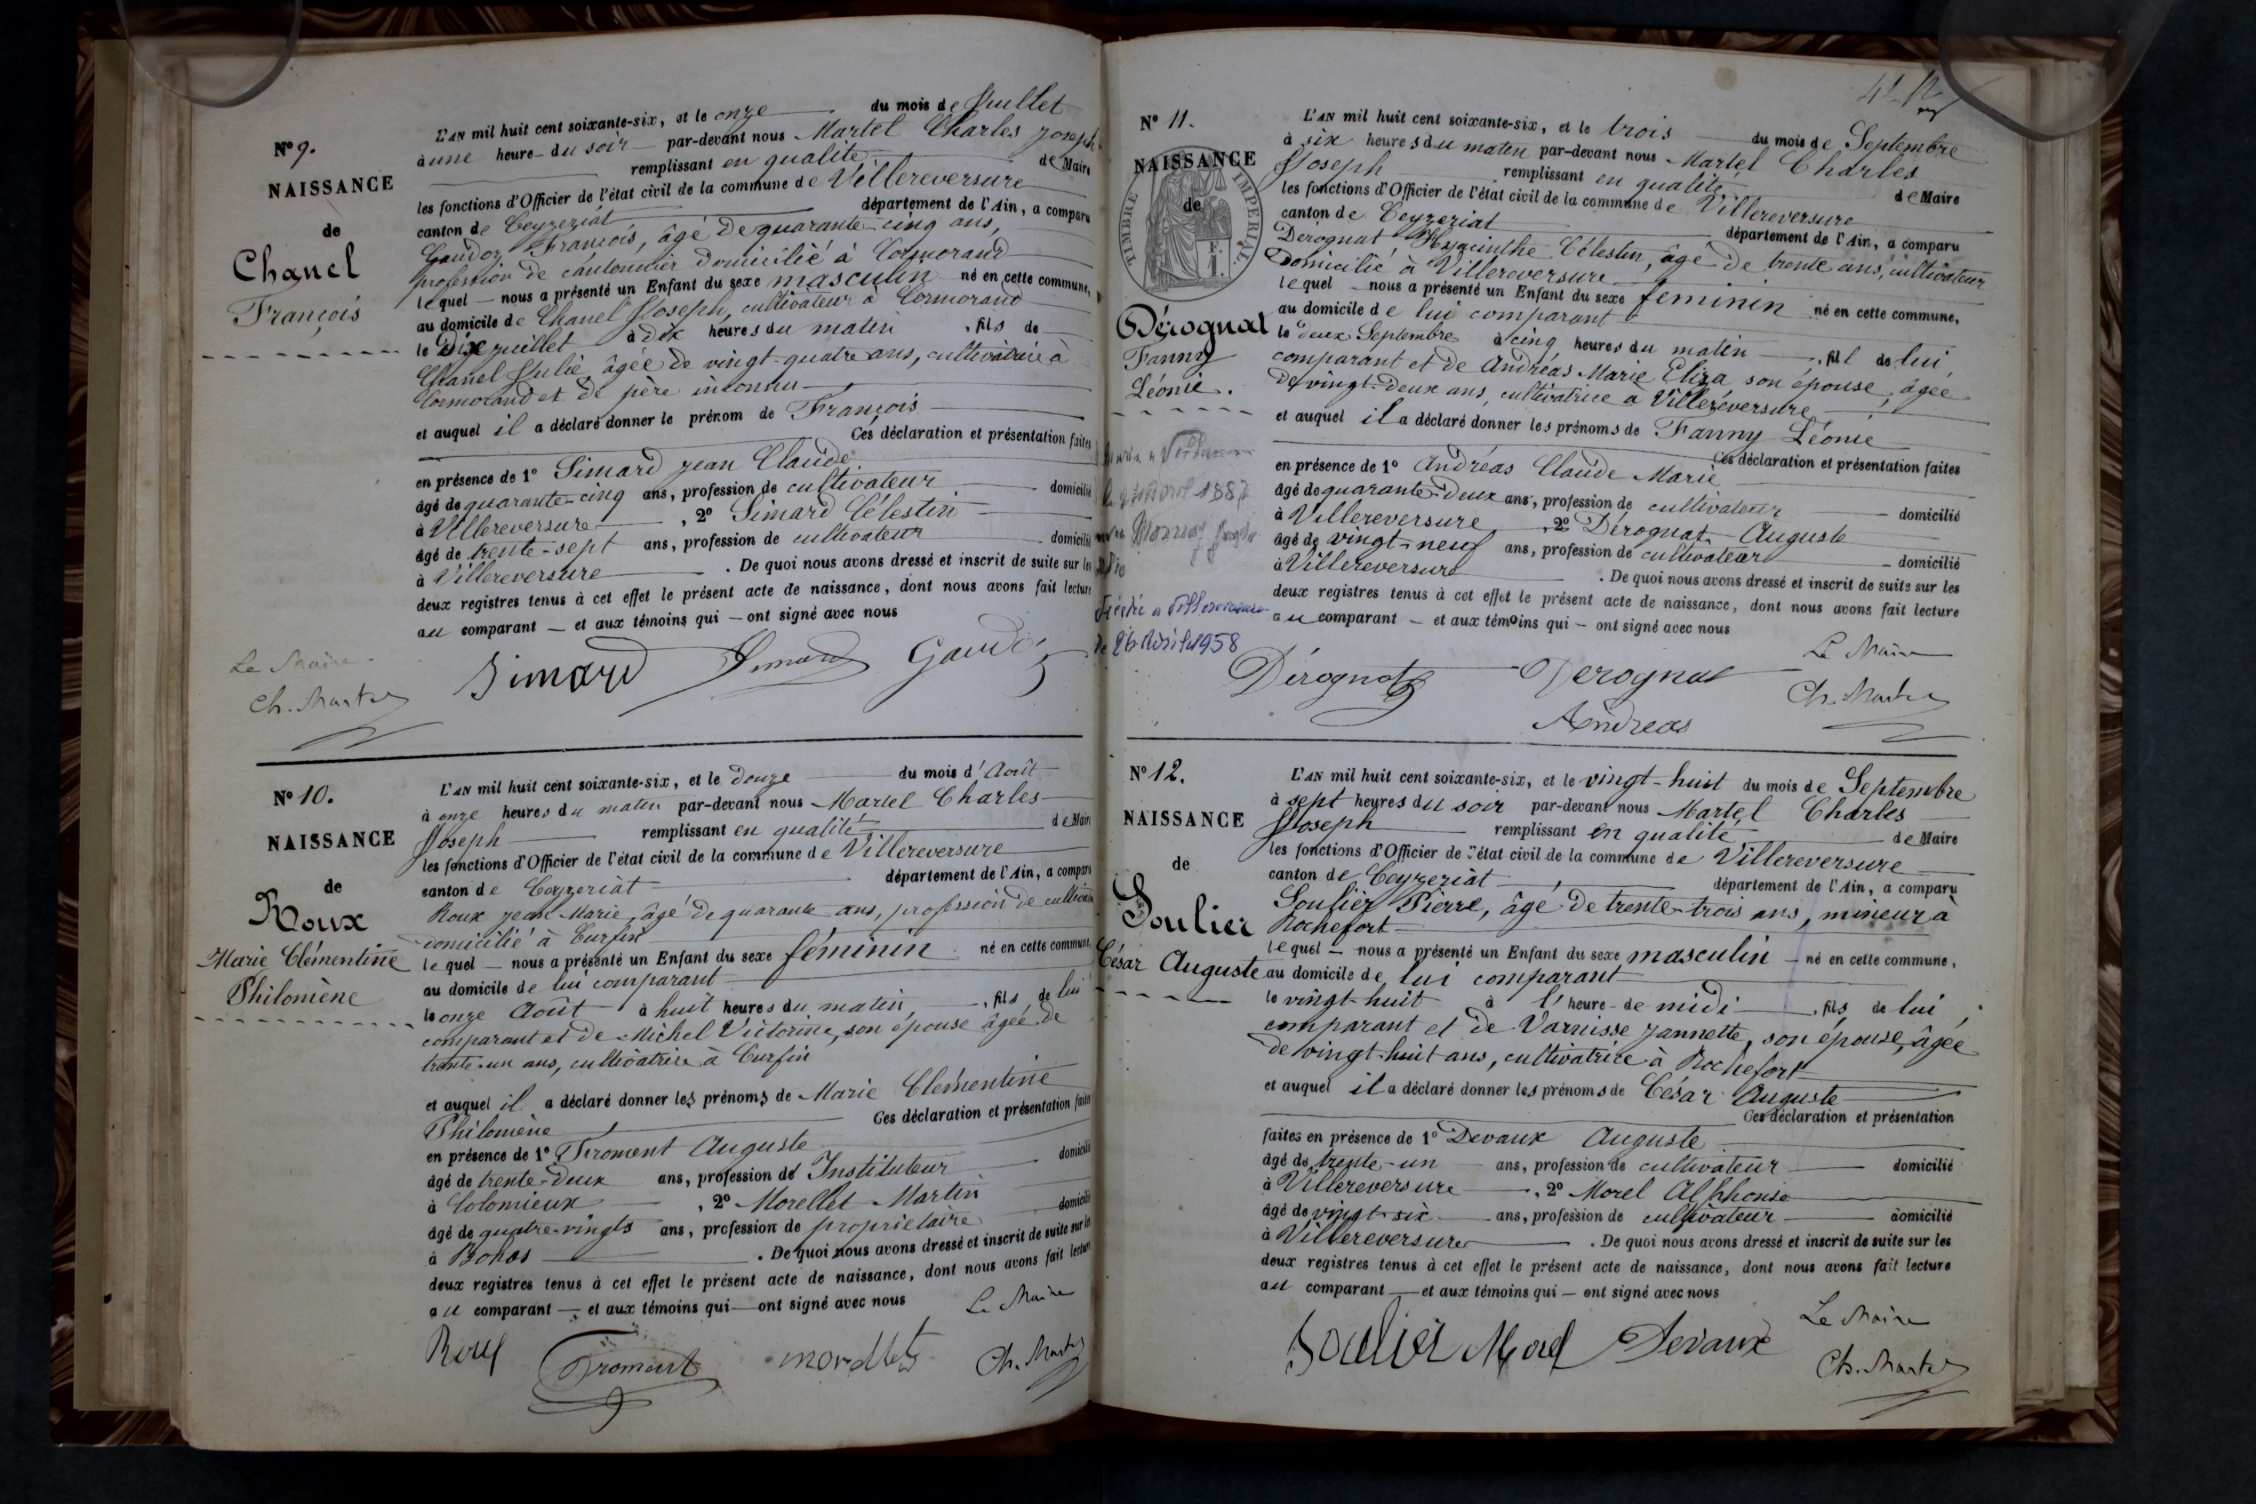 N° 9.
NAISSANCE
de
Chanel
François
L'AN mil huit cent soixante-six, et le onze du mois de Juillet
à une heure du soir par-devant nous Martel Charles Joseph
remplissant en qualité de Maire
les fonctions d'Officier de l'état civil de la commune de Villereversure
canton de Ceyzeriat département de l'Ain, a comparu
François, âgé de quarante-cinq ans,
profession de cantonnier domicilié à Cormorand
lequel nous a présenté un Enfant du sexe masculin né en cette commune,
au domicile de Chanel Joseph, cultivateur à Cormorand
le dix juillet à dix heures du matin, fils de
Chanel Julie âgée de vingt-quatre ans, cultivatrice à
Cormorand et de père inconnu
et auquel il a déclaré donner le prénom de François
Ces déclaration et présentation faites
en présence de 1° Simard Jean Claude
âgé de quarante-cinq ans, profession de cultivateur domicilié
à Villereversure, 2° Simard Célestin
âgé de trente-sept ans, profession de cultivateur domicilié
à Villereversure. De quoi nous avons dressé et inscrit de suite sur les
deux registres tenus à cet effet le présent acte de naissance, dont nous avons fait lecture
au comparant et aux témoins qui ont signé avec nous
Le Maire
Ch. Martel
Simard Simard
N° 10.
NAISSANCE
de
Roux
Marie Clémentine
Philomène
L'AN mil huit cent soixante-six, et le douze du mois d'Août
à onze heures du matin par-devant nous Martel Charles
Joseph remplissant en qualité de Maire
les fonctions d'Officier de l'état civil de la commune de Villereversure
canton de Ceyzeriat département de l'Ain, a comparu
Roux Jean Marie, âgé de quarante ans, profession de cultivateur
domicilié à Curfin
lequel nous a présenté un Enfant du sexe féminin né en cette commune,
au domicile de lui comparant
le onze Août à huit heures du matin, fils de lui
comparant et de Michel Victorine, son épouse âgée de
trente-un ans, cultivatrice à Curfin
et auquel il a déclaré donner les prénoms de Marie Clémentine
Philomène Ces déclaration et présentation faites
en présence de 1° Froment Auguste
âgé de trente-deux ans, profession de Instituteur domicilié
à Colomieux, 2° Morellet Martin
âgé de quatre-vingts ans, profession de propriétaire domicilié
à Bohas. De quoi nous avons dressé et inscrit de suite sur les
deux registres tenus à cet effet le présent acte de naissance, dont nous avons fait lecture
au comparant et aux témoins qui ont signé avec nous
Le Maire
Roux Froment Morellet Ch. Martel
N° 11.
NAISSANCE
de
TIMBRE IMPERIAL.
F.
1.
Dérognat
Fanny
Léonie.
1887
1958
L'AN mil huit cent soixante-six, et le trois du mois de Septembre
à six heures du matin par-devant nous Martel Charles
Joseph remplissant en qualité de Maire
les fonctions d'Officier de l'état civil de la commune de Villereversure
canton de Ceyzeriat département de l'Ain, a comparu
Dérognat Hyacinthe Célestin, âgé de trente ans, cultivateur
domicilié à Villereversure
lequel nous a présenté un Enfant du sexe féminin né en cette commune,
au domicile de lui comparant
le deux Septembre à cinq heures du matin, fil l de lui
comparant et de Andréas Marie Eliza son épouse, âgée
de vingt-deux ans, cultivatrice à Villereversure
et auquel il a déclaré donner les prénoms de Fanny Léonie
Ces déclaration et présentation faites
en présence de 1° Andréas Claude Marie
âgé de quarante-deux ans, profession de cultivateur domicilié
à Villereversure, 2° Dérognat Auguste
âgé de vingt-neuf ans, profession de cultivateur domicilié
à Villereversure. De quoi nous avons dressé et inscrit de suite sur les
deux registres tenus à cet effet le présent acte de naissance, dont nous avons fait lecture
au comparant et aux témoins qui ont signé avec nous
Le Maire
Dérognat Derognat Ch. Martel
Andreas
N° 12.
NAISSANCE
de
Soulier
César Auguste
L'AN mil huit cent soixante-six, et le vingt-huit du mois de Septembre
à sept heures du soir par-devant nous Martel Charles
Joseph remplissant en qualité de Maire
les fonctions d'Officier de l'état civil de la commune de Villereversure
canton de Ceyzeriat département de l'Ain, a comparu
Soulier Pierre, âgé de trente-trois ans, mineur à
Rochefort
lequel nous a présenté un Enfant du sexe masculin né en cette commune,
au domicile de lui comparant
le vingt-huit à l'heure de midi, fils de lui
comparant et de Varnisse Jannette, son épouse, âgée
de vingt-huit ans, cultivatrice à Rochefort
et auquel il a déclaré donner les prénoms de César Auguste
Ces déclaration et présentation
faites en présence de 1° Devaux Auguste
âgé de trente-un ans, profession de cultivateur domicilié
à Villereversure, 2° Morel Alphonse
âgé de vingt-six ans, profession de cultivateur domicilié
à Villereversure. De quoi nous avons dressé et inscrit de suite sur les
deux registres tenus à cet effet le présent acte de naissance, dont nous avons fait lecture
au comparant et aux témoins qui ont signé avec nous
Le Maire
Soulier Morel Devaux
Ch. Martel